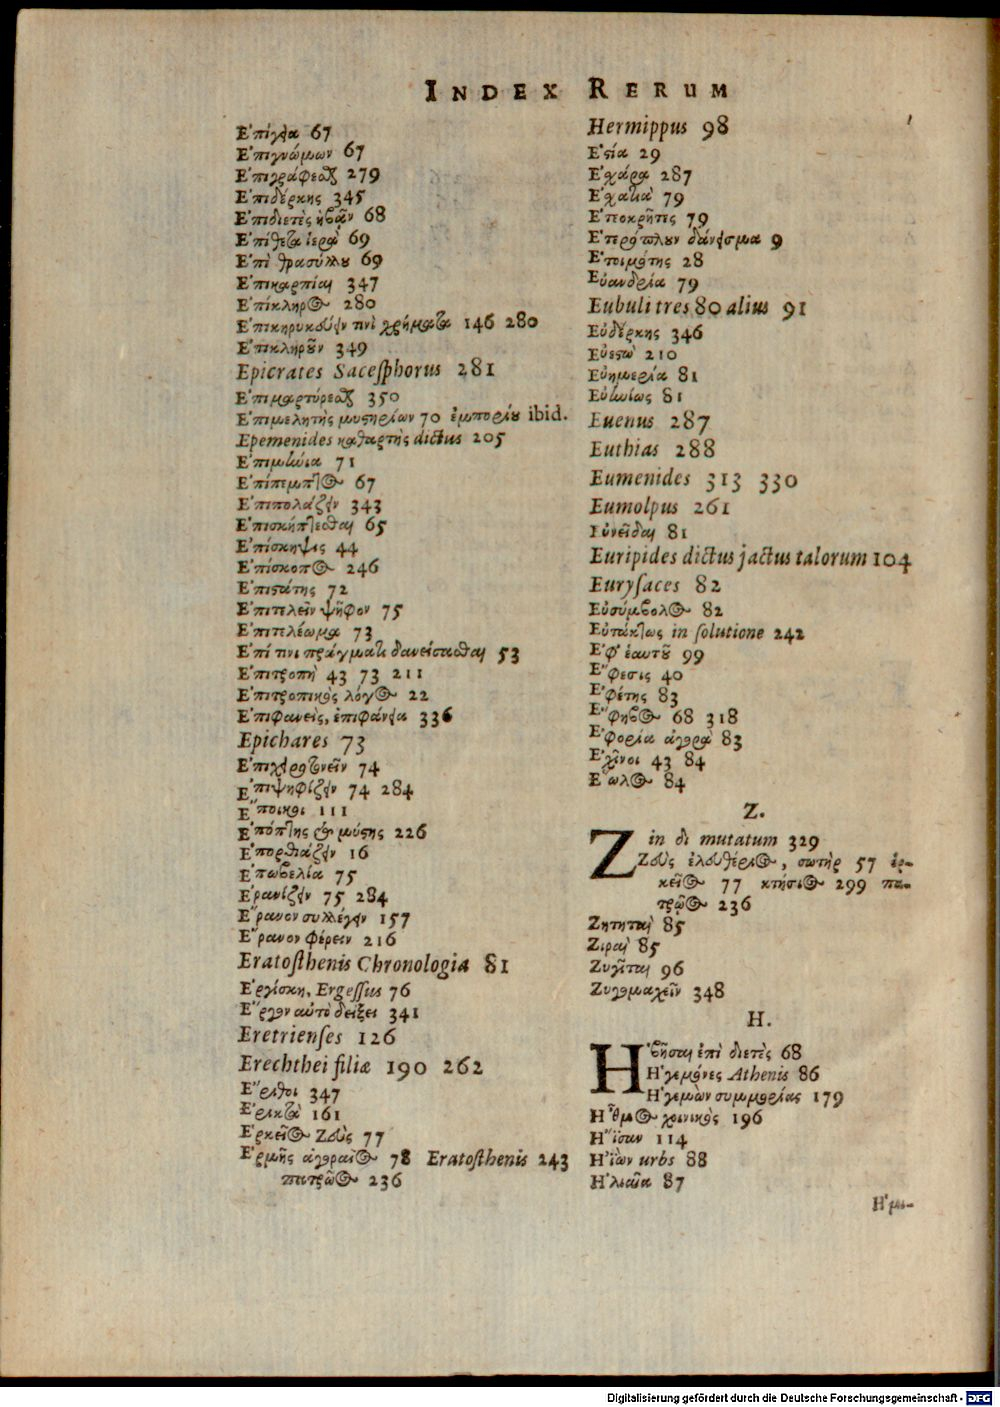 INDEX RERUM
Ἐπίγεια 67
Ἐπιγνώμων 67
Ἐπιγράφεσθαι 279
Ἐπιδέρκης 345
Ἐπιδιετὲς ἡβᾶν 68
Ἐπίθετα ἱερὰ 69
Ἐπὶ Θρασύλλου 69
Ἐπικαρπίαι 347
Ἐπίκληρος 280
Ἐπικηρυκεύειν τινὶ χρήματα 146 280
Ἐπικληροῦν 349
Epicrates Saceſphorus 281
Ἐπιμαρτύρεσθαι 350
Ἐπιμελητὴς μυστηρίων 70 ἐμπορίου ibid.
Epemenides καθαρτὴς dictus 205
Ἐπιμήνια 71
Ἐπίπεμπτος 67
Ἐπιπολάζειν 343
Ἐπισκήπτεσθαι 65
Ἐπίσκηψις 44
Ἐπίσκοπος 246
Ἐπιστάτης 72
Ἐπιτελεῖν ψῆφον 75
Ἐπιτελέωμα 73
Ἐπί τινι πράγματι δανείσασθαι 53
Ἐπιτροπὴ 43 73 211
Ἐπιτροπικὸς λόγος 22
Ἐπιφανεὶς, ἐπιφάνεια 336
Epichares 73
Ἐπιχειροτονεῖν 74
Ἐπιψηφίζειν 74 284
Ἔποικοι 111
Ἐπόπτης καὶ μύστης 226
Ἐπορθιάζειν 16
Ἐπωβελία 75
Ἐρανίζειν 75 284
Ἔρανον συλλέγειν 157
Ἔρανον φέρειν 216
Eratoſthenis Chronologia 81
Ἐργίσκη, Ergeſſius 76
Ἔργον αὐτὸ δείξει 341
Eretrienſes 126
Erechthei filiæ 190 262
Ἔριθοι 347
Ἔρικτα 161
Ἑρκεῖος Ζεὺς 77
Ἑρμῆς ἀγοραῖος 78 Eratoſthenis 243
πατρῷος 236
Hermippus 98
Ἑστία 29
Ἐχάρα 287
Ἐχατιὰ 79
Ἐτεοκρῆτες 79
Ἑτερόπλουν δάνεισμα 9
Ἑτοιμότης 28
Εὐανδρία 79
Eubuli tres 80 alius 91
Εὐδέρκης 346
Εὐεστὼ 210
Εὐημερία 81
Εὐθήνως 81
Euenus 287
Euthias 288
Eumenides 313 330
Eumolpus 261
Εὐνεῖδαι 81
Euripides dictus jactus talorum 104
Euryſaces 82
Εὐσύμβολος 82
Εὐτάκτως in ſolutione 242
Ἐφ' ἑαυτοῦ 99
Ἔφεσις 40
Ἐφέτης 83
Ἔφηβος 68 318
Ἐφορία ἀγορὰ 83
Ἐχῖνοι 43 84
Ἕωλος 84
Z.
Z in δι mutatum 329
Ζεὺς ἐλευθέριος, σωτὴρ 57 ἑρ-
κεῖος 77 κτήσιος 299 πα-
τρῷος 236
Ζητηταὶ 85
Ζιραὶ 85
Ζυγῖται 96
Ζυγομαχεῖν 348
H.
Ἡβῆσαι ἐπὶ διετὲς 68
Ἡγεμόνες Athenis 86
Ἡγεμὼν συμμορίας 179
Ἠθμος χοινικὸς 196
Ἤϊσαν 114
Ἠϊὼν urbs 88
Ἡλιαία 87
Ἡμι-
Digitalisierung gefördert durch die Deutsche Forschungsgemeinschaft - DFG